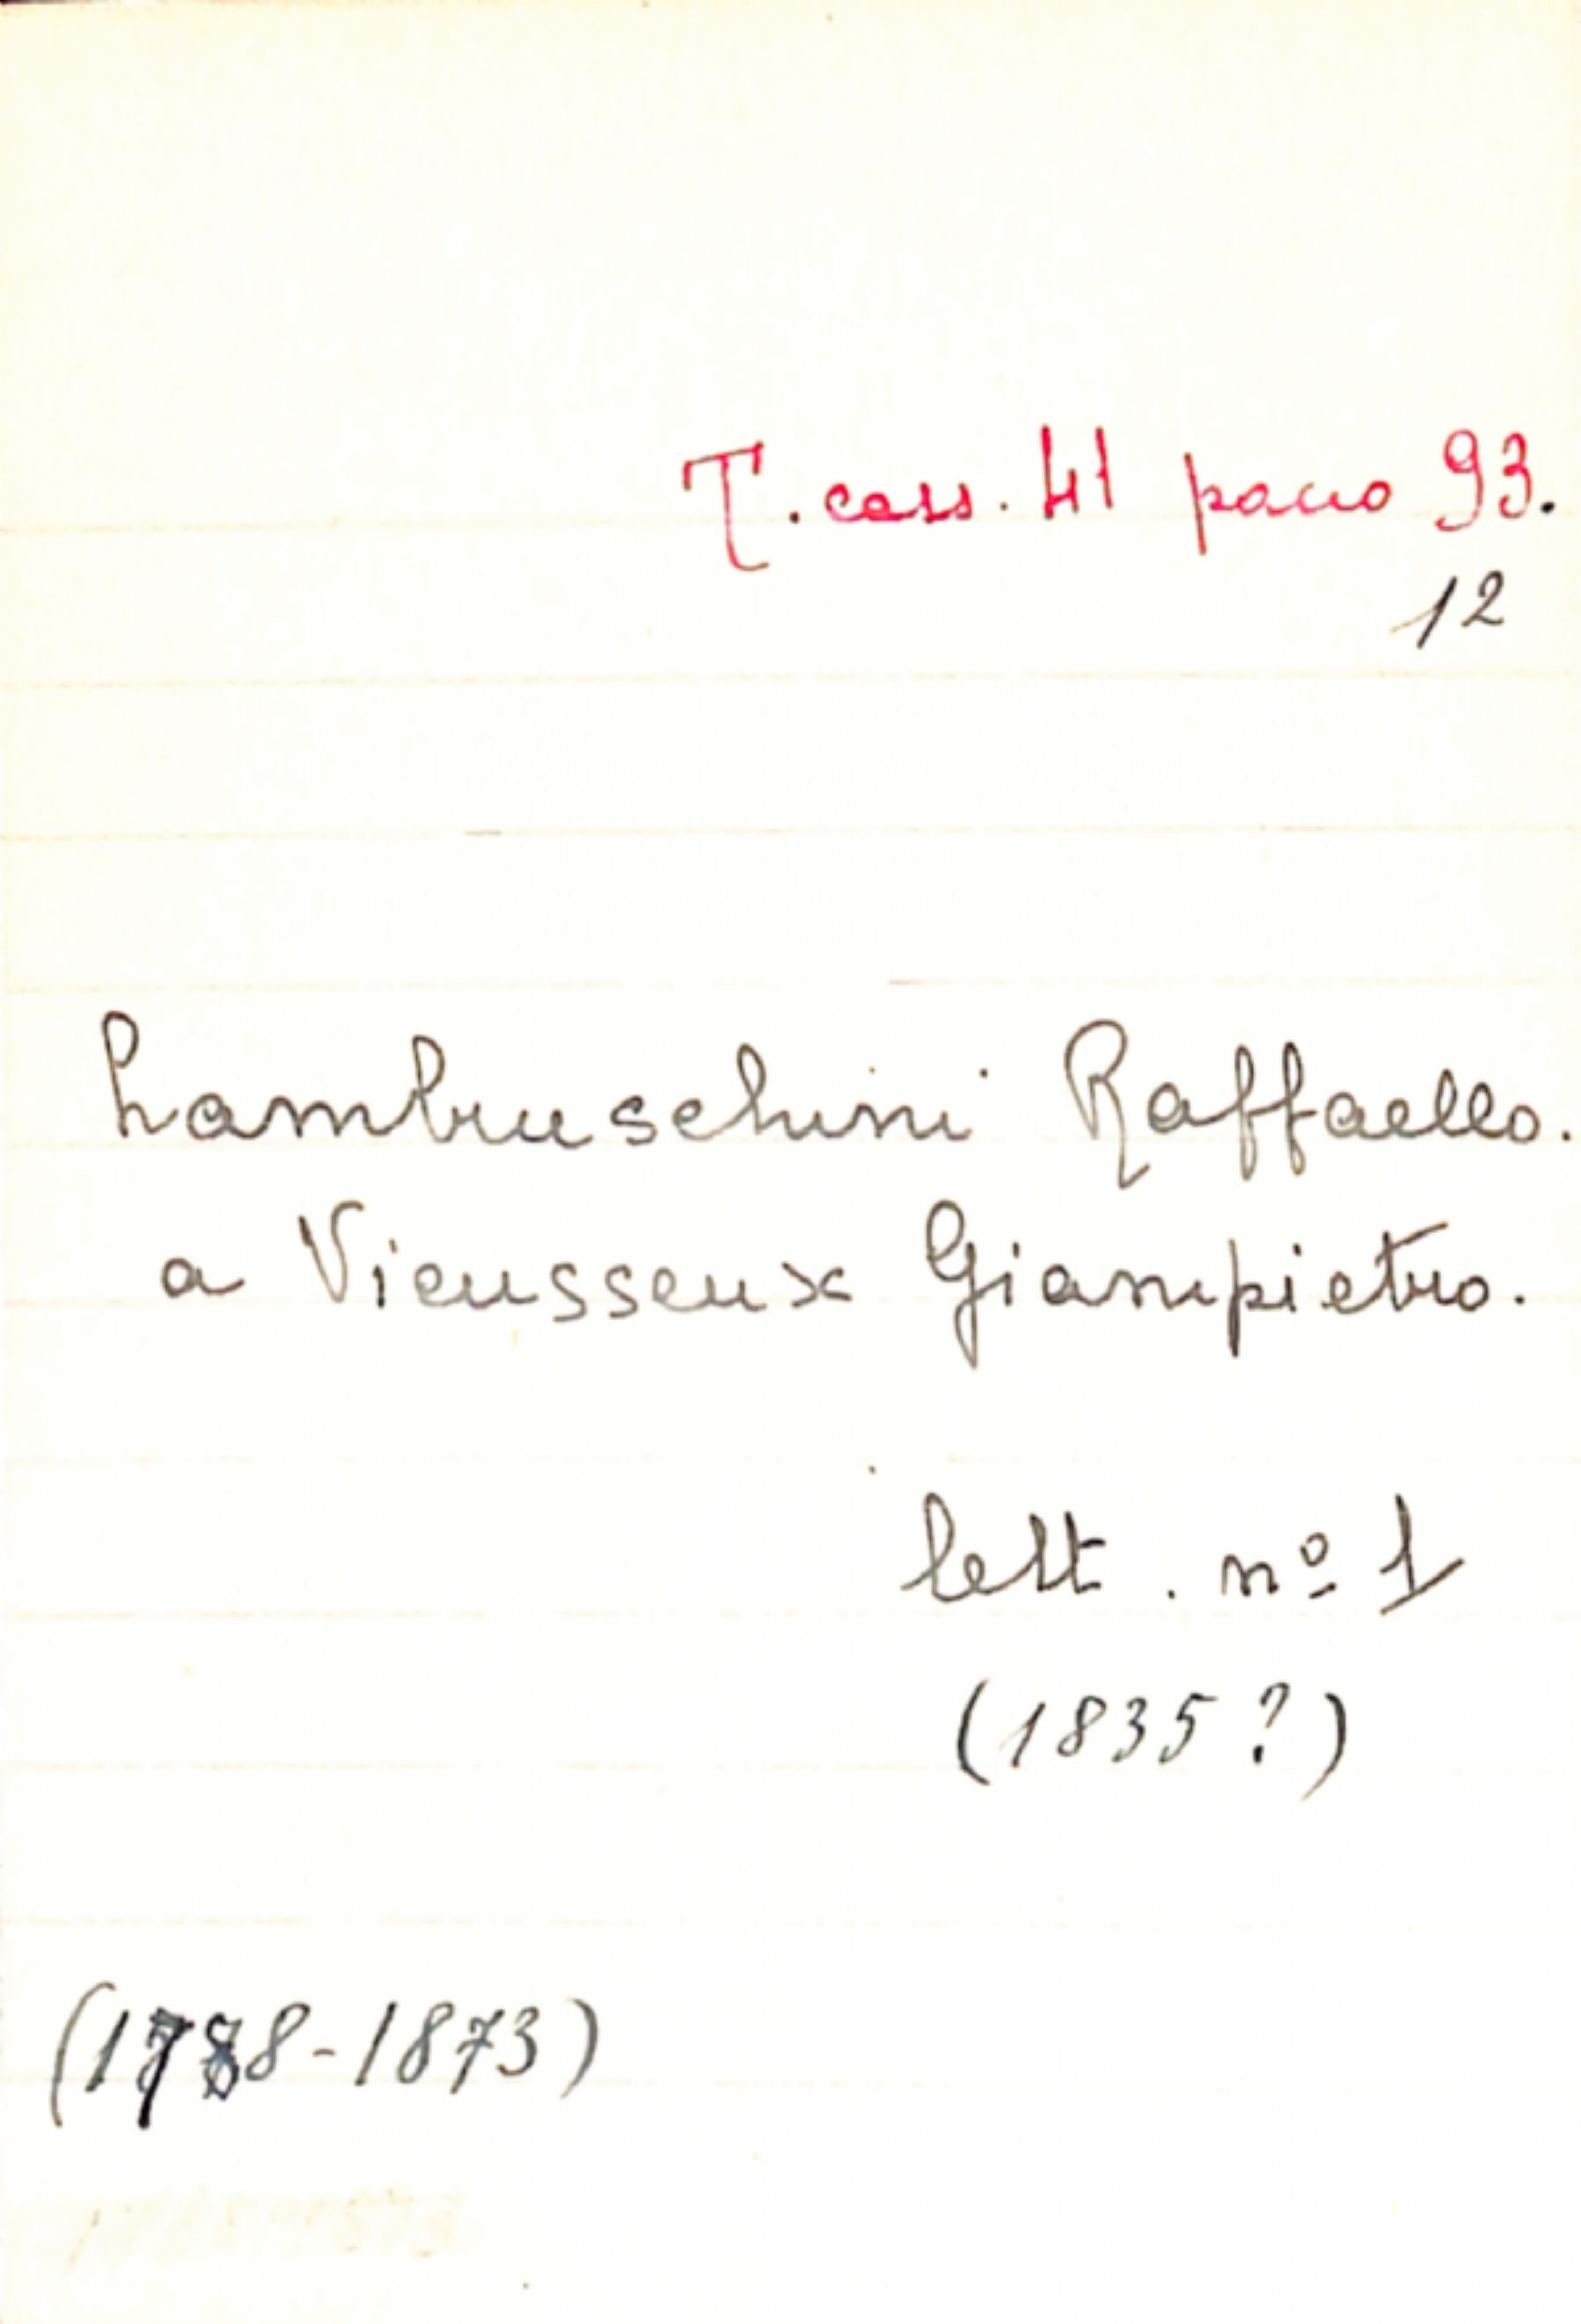 T. cass. 41 pacco 93.
12
Lambruschini Raffaello.
a Vieusseux Giampietro.
lett. nº 1
(1835?)
(1788-1873)